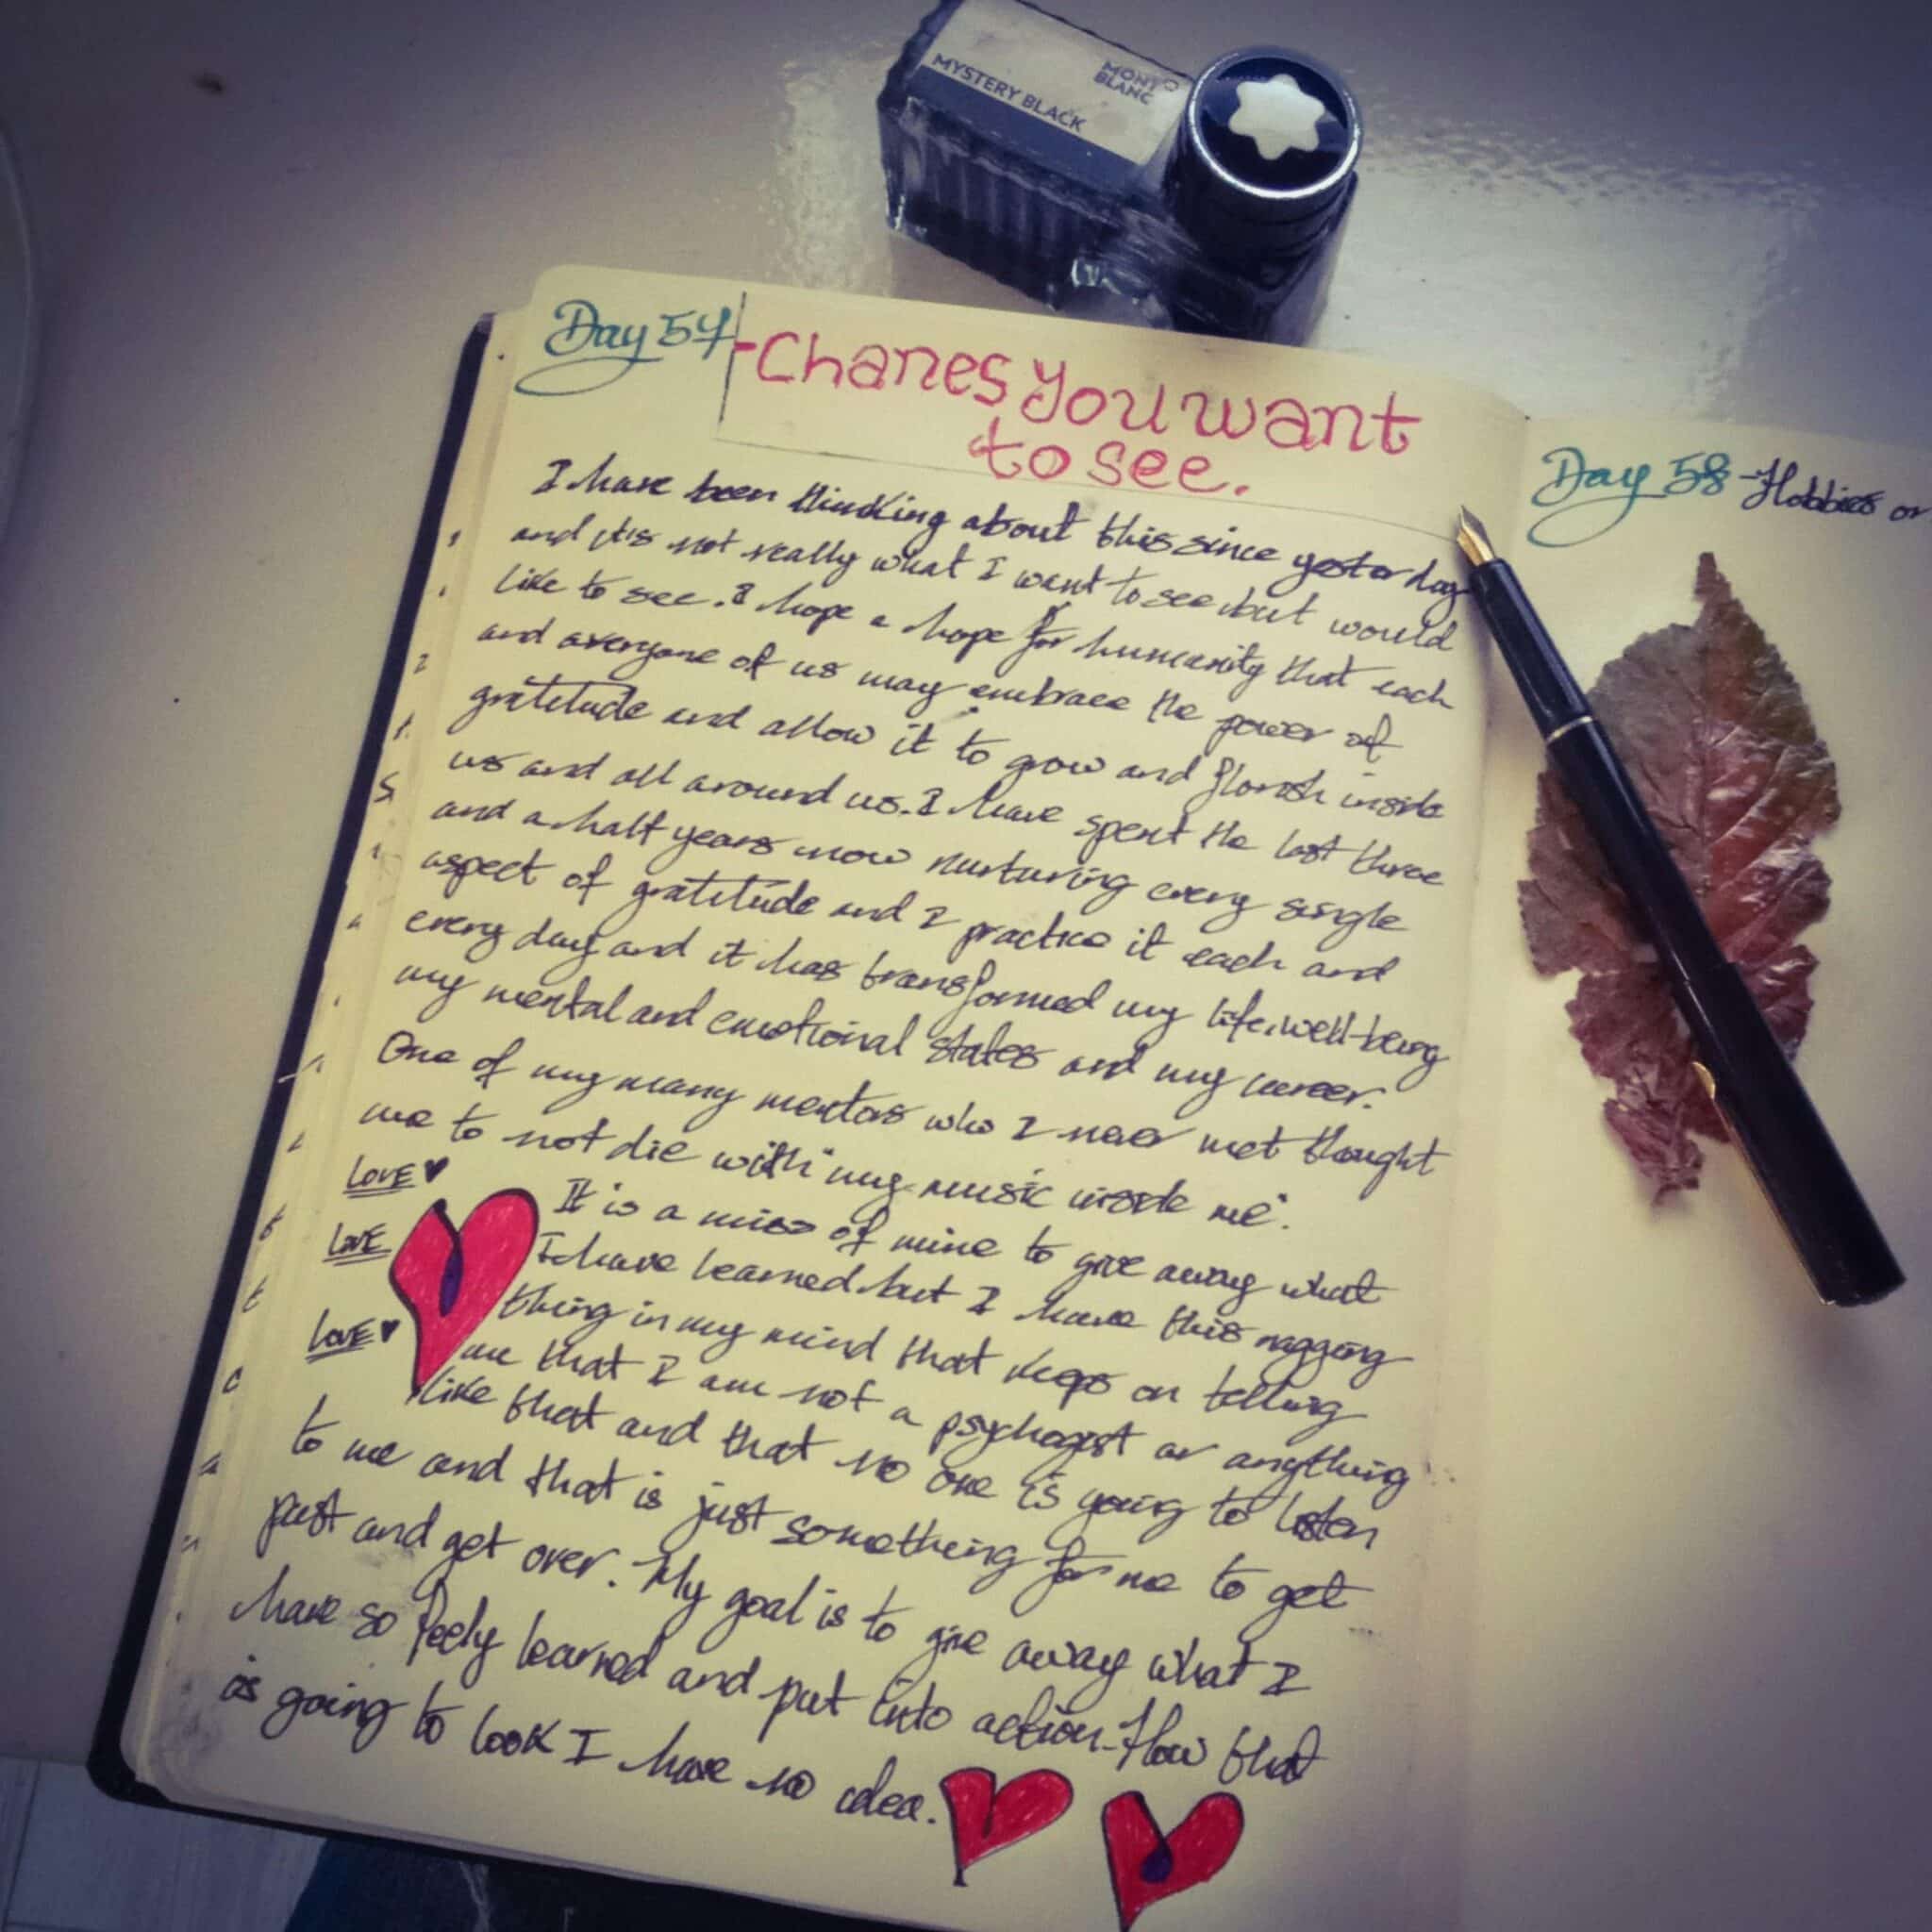 MONT
BLANC
MYSTERY BLACK
Day 57
-Chanes you want
to see.
I have been thinking about this since yesterday
and it's not really what I want to see but would
like to see. I hope a hope for humanity that each
and averyone of us may embrace the power of
gratitude and allow it to grow and florish inside
us and all around us. I have spent the last three
and a half years now nurturing every single
aspect of gratitude and I practice it each and
every day and it has transformed my life, well-being
my mental and emotional states and my career.
One of my many mentors who I never met thought
me to not die with "my music inside me".
LOVE ♥
It is a of mine to give away what
LOVE
I have learned but I have this nagging
thing in my mind that keeps on telling
LOVE ♥
me that I am not a or anything
like that and that no one is going to listen
to me and that is just something for me to get
past and get over. My goal is to give away what I
have so learned and put into action. How that
is going to look I have no idea.
Day 58 - Hobbies or